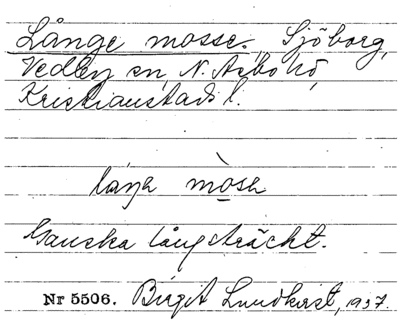 Långe mosse, Sjöborg,
Vedby sn, N. Åsbo hd,
Kristianstads l.
låŋa mòsa
Ganska långsträckt.
Nr 5506. Birgit Lundkvist, 1937.